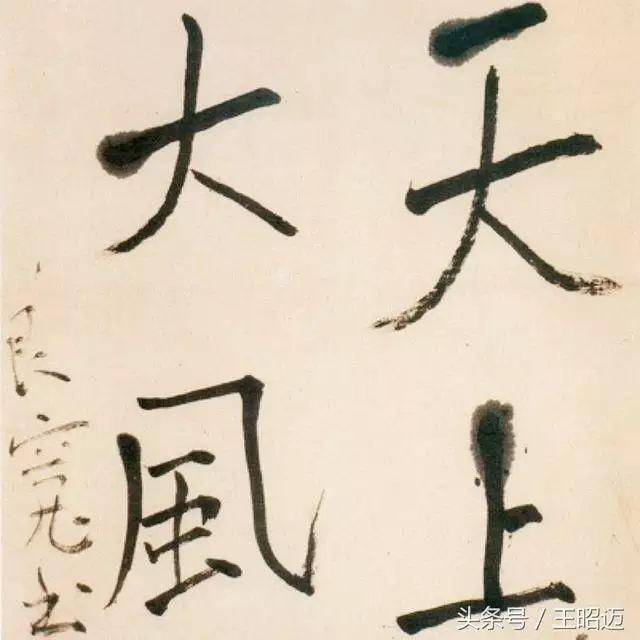 天上
大風
良寛書
头条号 / 王昭迈